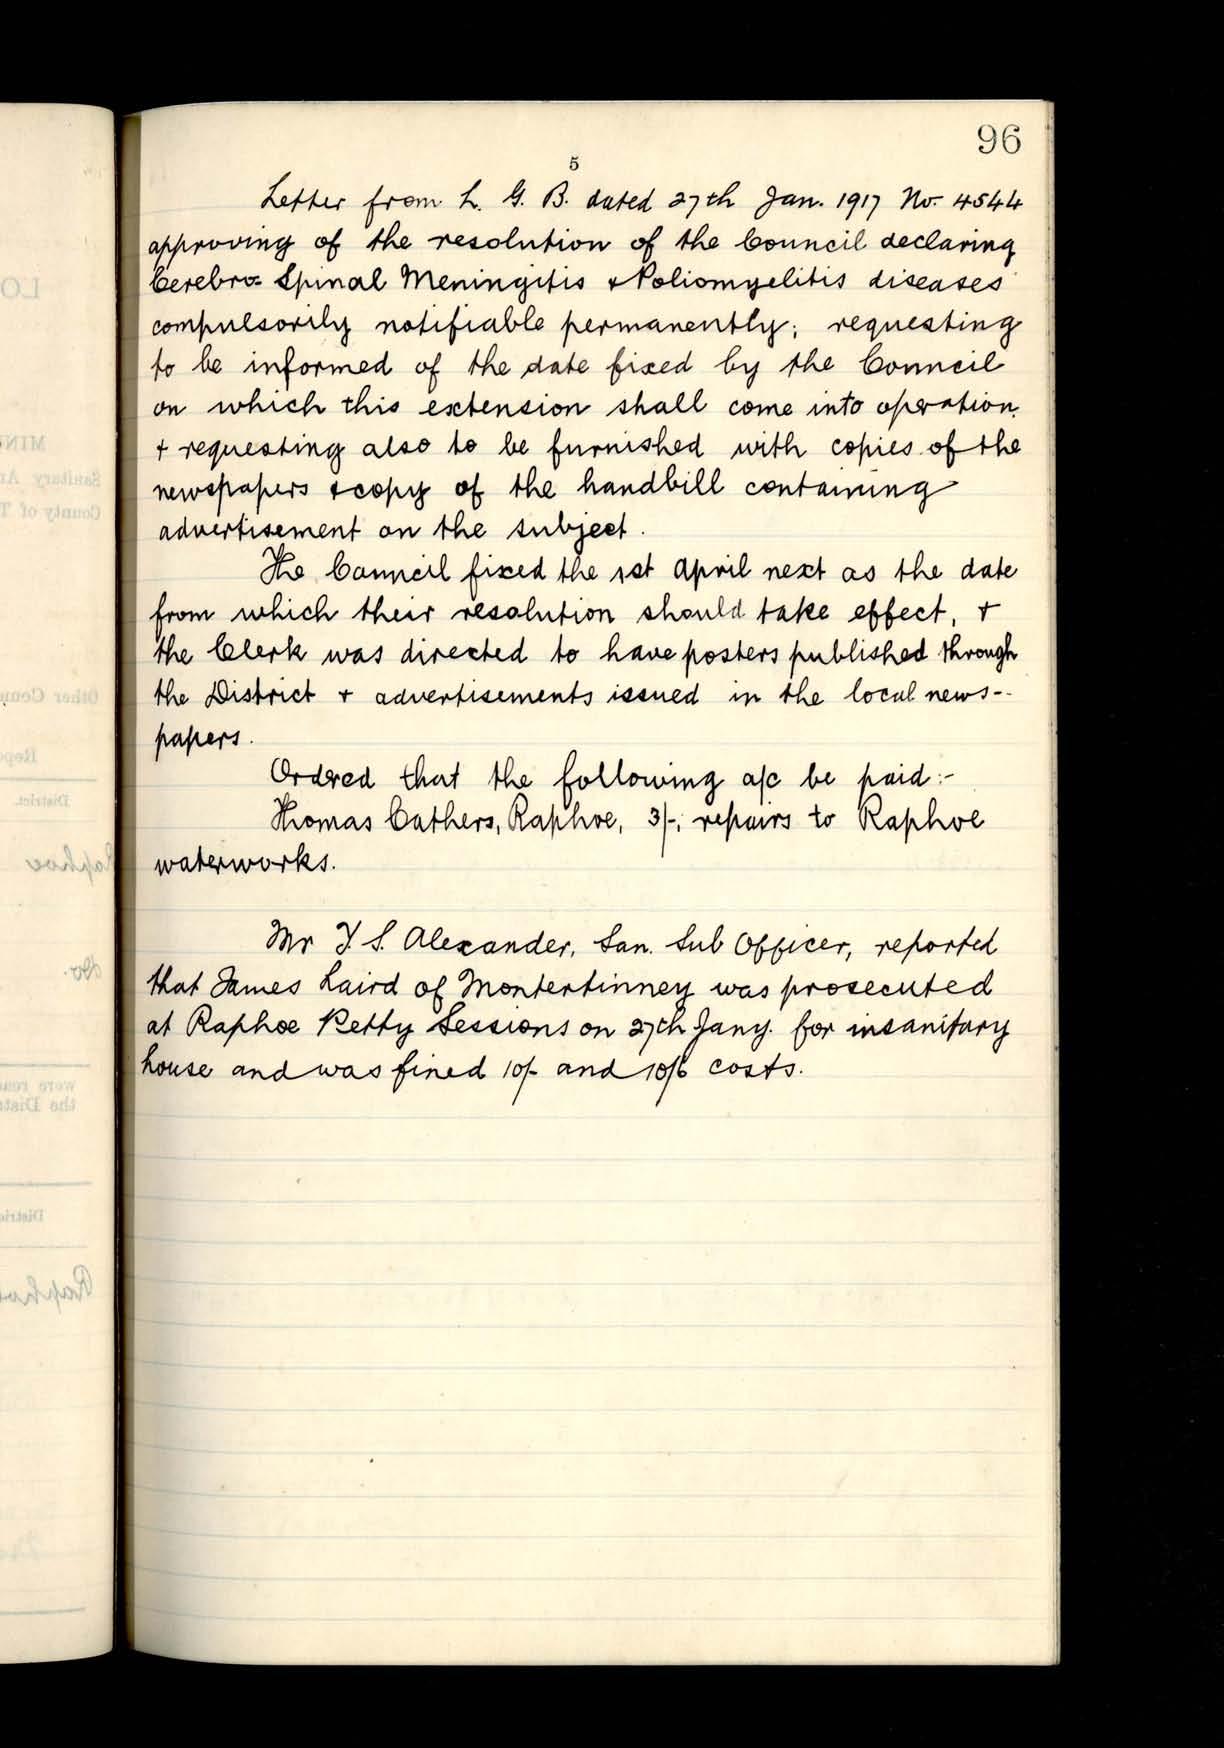 96
5
Letter from L. G. B. dated 27th Jan. 1917 No. 4544
approving of the resolution of the Council declaring
Cerebro-Spinal Meningitis & Poliomyelitis diseases
compulsorily notifiable permanently; requesting
to be informed of the date fixed by the Council
on which this extension shall come into operation.
& requesting also to be furnished with copies of the
newspapers & copy of the handbill containing
advertisement on the subject.
The Council fixed the 1st April next as the date
from which their resolution should take effect, &
the Clerk was directed to have posters published through
the District & advertisements issued in the local news-
papers.
Ordered that the following a/c be paid:-
Thomas Cathers, Raphoe, 3/-; repairs to Raphoe
waterworks.
Mr T. S. Alexander, San. Sub Officer, reported
that James Laird of Montertinney was prosecuted
at Raphoe Petty Sessions on 27th Jany. for insanitary
house and was fined 10/- and 10/6 costs.